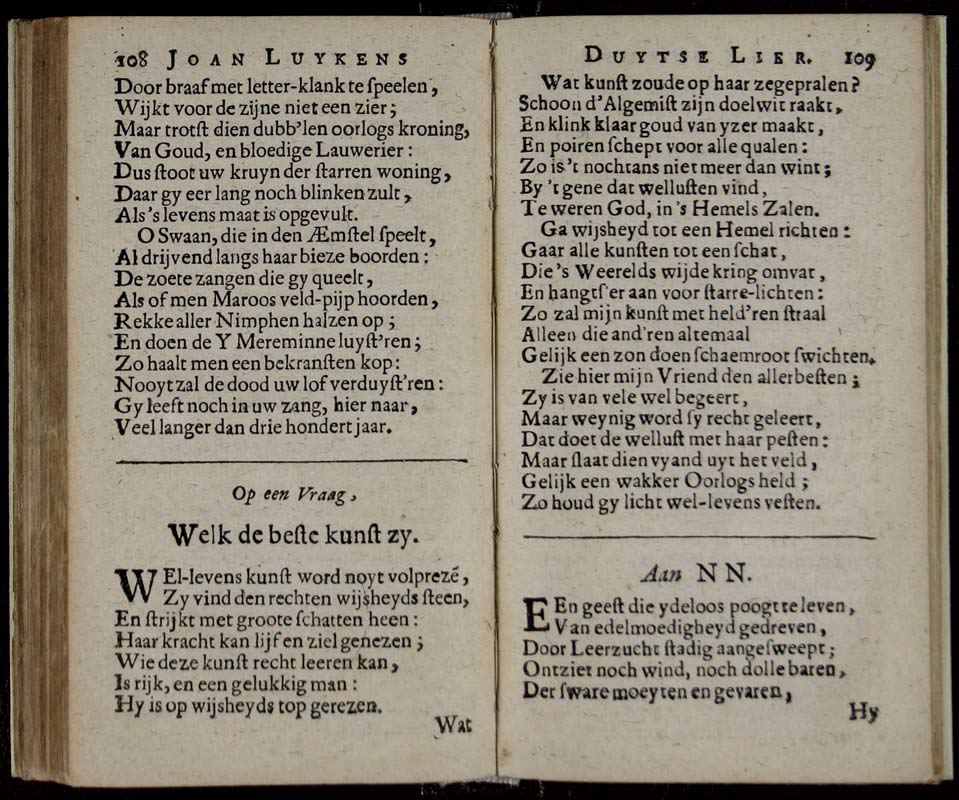 108 JOAN LUYKENS
Door braaf met letter-klank te ſpeelen,
Wijkt voor de zijne niet een zier;
Maar trotſt dien dubb'len oorlogs kroning,
Van Goud, en bloedige Lauwerier:
Dus ſtoot uw kruyn der ſtarren woning,
Daar gy eer lang noch blinken zult,
Als 's levens maat is opgevult.
O Swaan, die in den Æmſtel ſpeelt,
Al drijvend langs haar bieze boorden:
De zoete zangen die gy queelt,
Als of men Maroos veld-pijp hoorden,
Rekke aller Nimphen halzen op;
En doen de Y Mereminne luyſt'ren;
Zo haalt men een bekranſten kop:
Nooyt zal de dood uw lof verduyſt'ren:
Gy leeft noch in uw zang, hier naar,
Veel langer dan drie hondert jaar.
Op een Vraag,
Welk de beſte kunſt zy.
WEl-levens kunſt word noyt volprezē,
Zy vind den rechten wijsheyds ſteen,
En ſtrijkt met groote ſchatten heen:
Haar kracht kan lijf en ziel genezen;
Wie deze kunſt recht leeren kan,
Is rijk, en een gelukkig man:
Hy is op wijsheyds top gerezen.
Wat
DUYTSE LIER. 109
Wat kunſt zoude op haar zegepralen?
Schoon d'Algemiſt zijn doelwit raakt,
En klink klaar goud van yzer maakt,
En poiren ſchept voor alle qualen:
Zo is 't nochtans niet meer dan wint;
By 't gene dat welluſten vind,
Te weren God, in 's Hemels Zalen.
Ga wijsheyd tot een Hemel richten:
Gaar alle kunſten tot een ſchat,
Die 's Weerelds wijde kring omvat,
En hangtſ'er aan voor ſtarre-lichten:
Zo zal mijn kunſt met held'ren ſtraal
Alleen die and'ren altemaal
Gelijk een zon doen ſchaemroot ſwichten.
Zie hier mijn Vriend den allerbeſten;
Zy is van vele wel begeert,
Maar weynig word ſy recht geleert,
Dat doet de welluſt met haar peſten:
Maar ſlaat dien vyand uyt het veld,
Gelijk een wakker Oorlogs held;
Zo houd gy licht wel-levens veſten.
Aan N N.
EEn geeſt die ydeloos poogt te leven,
Van edelmoedigheyd gedreven,
Door Leerzucht ſtadig aangeſweept;
Ontziet noch wind, noch dolle baren,
Der ſware moeyten en gevaren,
Hy